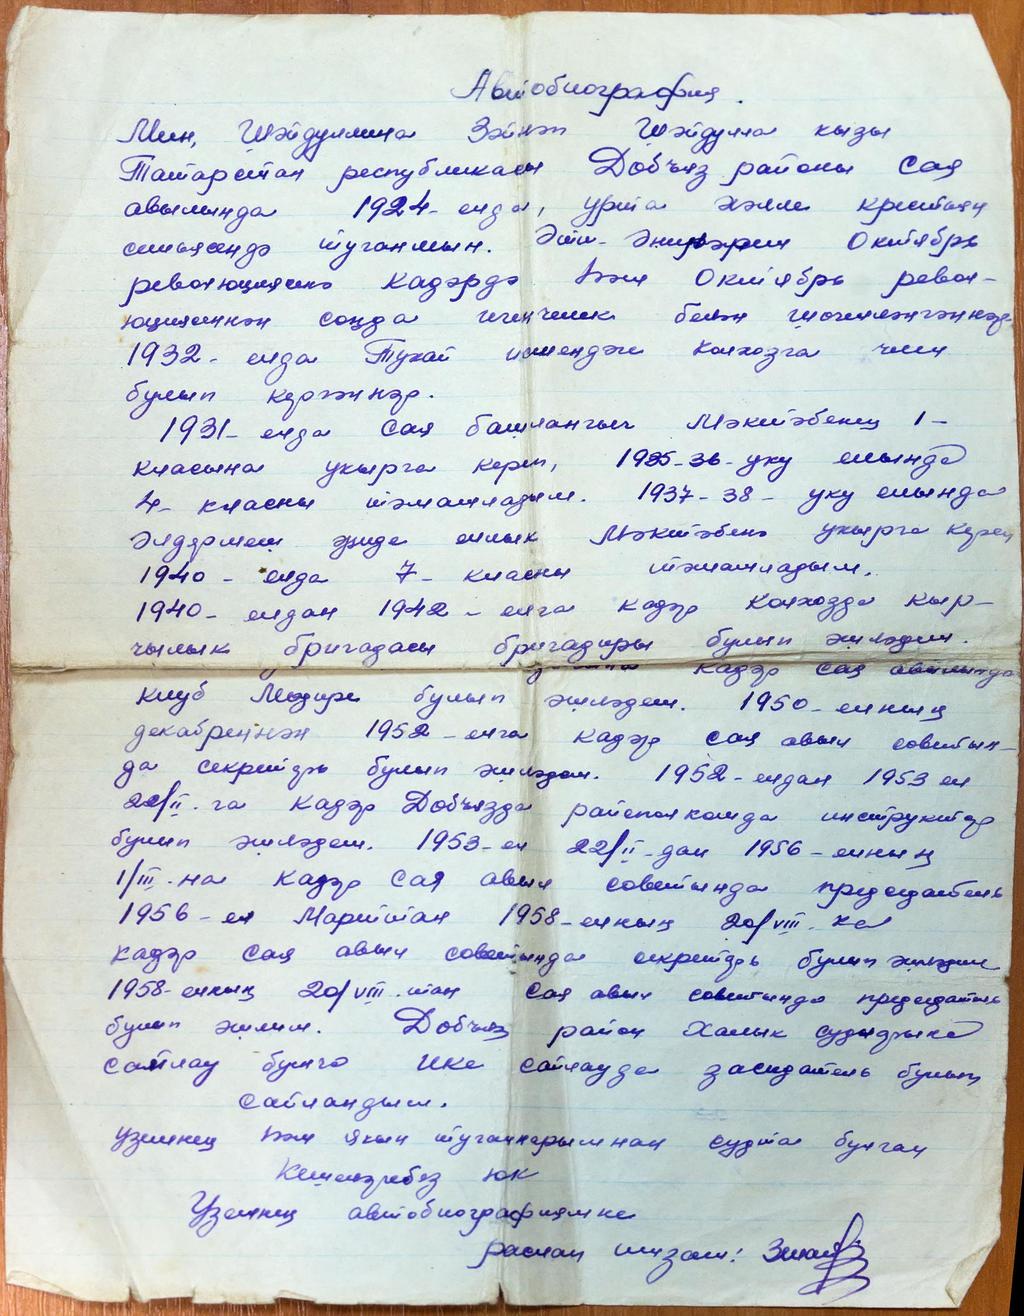 Автобиография.
Мин, Шәйдуллина Зәйнәп Шәйдулла кызы
Татарстан республикасы Дөбъяз районы Сая
авылында 1924-елда, урта хәлле крестьян
семьясендә туганмын. Әти-әниләрем Октябрь
революциясенә кадәрдә һәм Октябрь револ-
юциясеннән соңда игенчелек белән шөгелләнгәннәр
1932-елда Тукай исемендәге колхозга член
булып кергәннәр.
1931-елда Сая башлангыч Мәктәбенең 1-
класына укырга кереп, 1935-36-уку елында
4-класны тәмамладым. 1937-38-уку елында
Әлдермеш җиде еллык Мәктәбенә укырга кереп
1940-елда 7-класны тәмамладым.
1940-елдан 1942-елга кадәр Колхозда кыр-
чылык бригадасы бригадиры булып эшләдем.
кадәр Сая авылында
клуб Мөдире булып эшләдем. 1950-елның
декабреннән 1952-елга кадәр Сая авыл советын-
да секретарь булып эшләдем. 1952-елдан 1953 ел
22/II-га кадәр Дөбъязда райисполкомда инструктор
булып эшләдем. 1953-ел 22/II-дан 1956-елның
1/III-на кадәр Сая авыл советында председатель
1956-ел Марттан 1958-елның 20/VIII-на
кадәр Сая авыл советында секретарь булып эшләдем
1958-елның 20/VIII-тан Сая авыл советында председатель
булып эшлим. Дөбъяз район Халык судьясына
сайлау буенча ике сайлауда заседатель булып
сайландым.
Үземнең һәм якын туганнарымнан судта булган
Кешеләребез юк
Үземнең автобиографиямне
раслап язам: